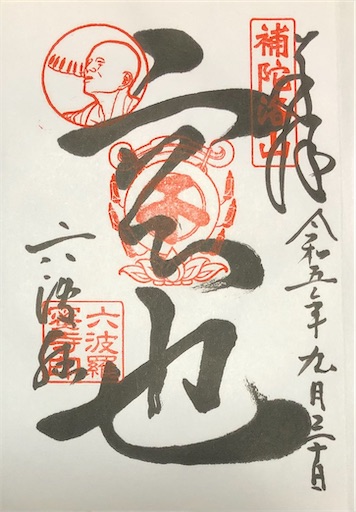 奉拝
補陀洛山
令和五年九月三十日
空也
六波羅
六波羅
蜜寺印